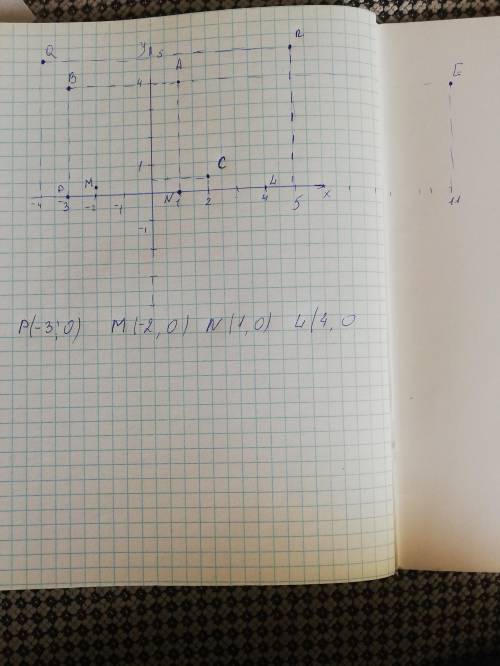 Q y 5 R
B 4 A E
P M 1 C L
-4 -3 -2 -1 N 1 2 4 5 x 11
-1
P(-3; 0) M(-2, 0) N(1, 0) L(4, 0